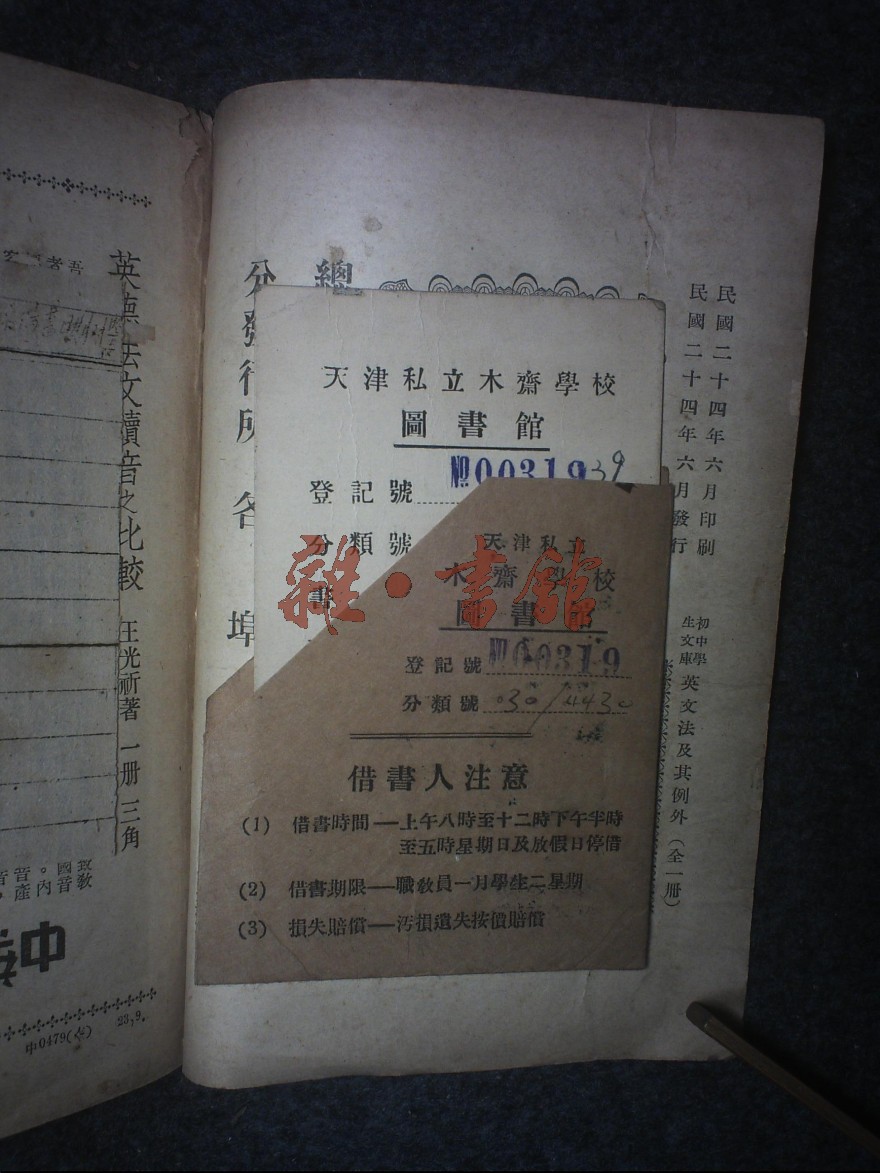 民國二十四年六月印刷
民國二十四年六月發行
初中學生文庫 英文法及其例外（全一冊）
總
分發行所 各埠
天津私立木齋學校
圖書館
登記號 № 00319 39
分類號
書
天津私立
木齋學校
圖書館
登記號 № 00319
分類號 030/
借書人注意
(1) 借書時間—上午八時至十二時下午半時
至五時星期日及放假日停借
(2) 借書期限—職教員一月學生二星期
(3) 損失賠償—汚損遺失按價賠償
英德法文讀音之比較 王光祈著 一册 三角
中0479(全) 23,9.
雜·書館